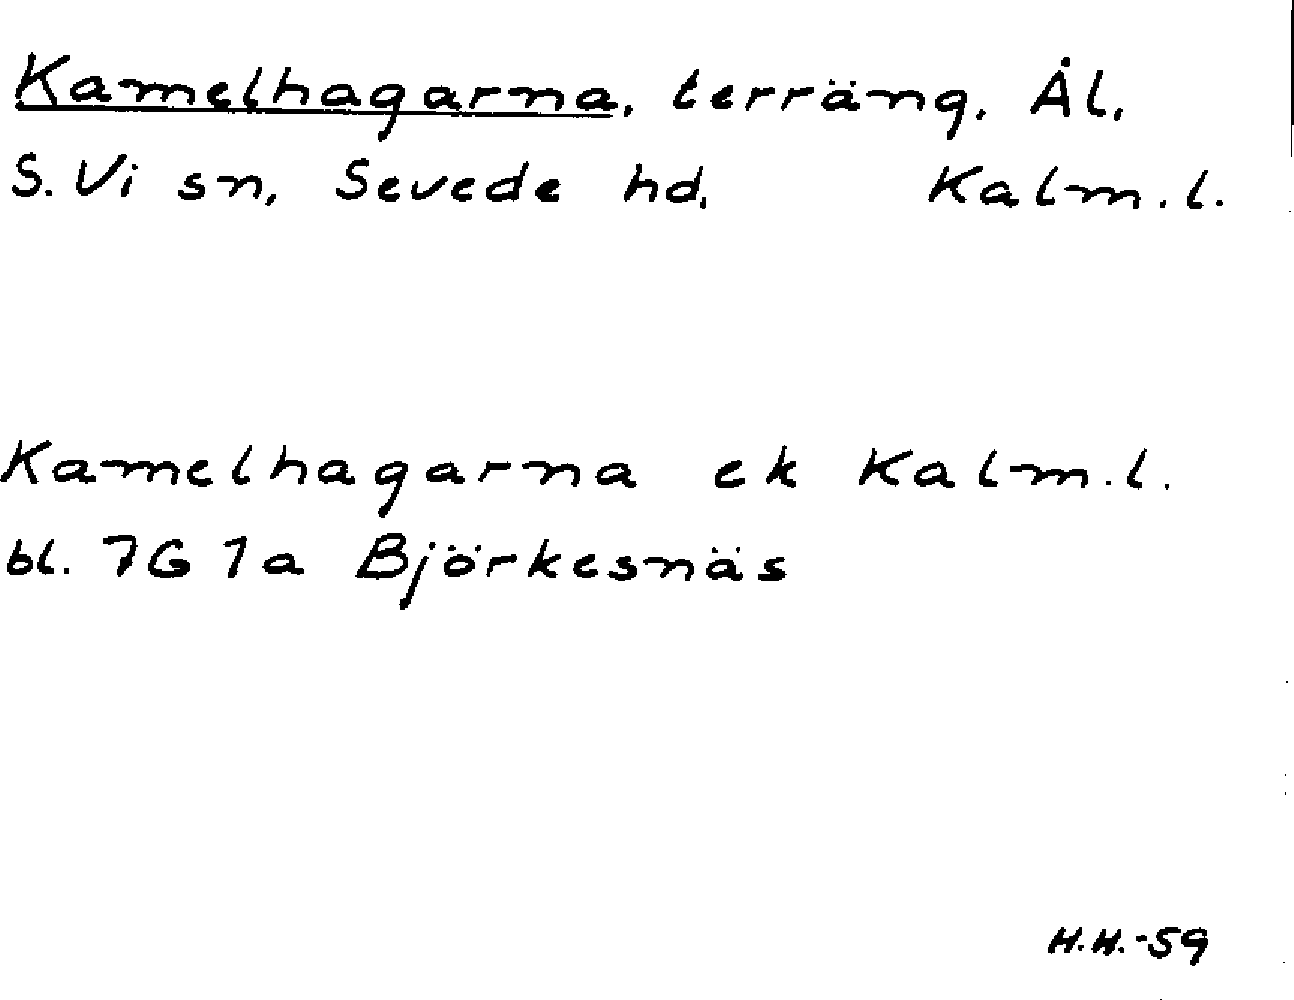 Kamelhagarna, terräng, Ål,
S. Vi sn, Sevede hd, Kalm. l.
Kamelhagarna ek Kalm. l.
bl. 7G 1a Björkesnäs
H.H.-59